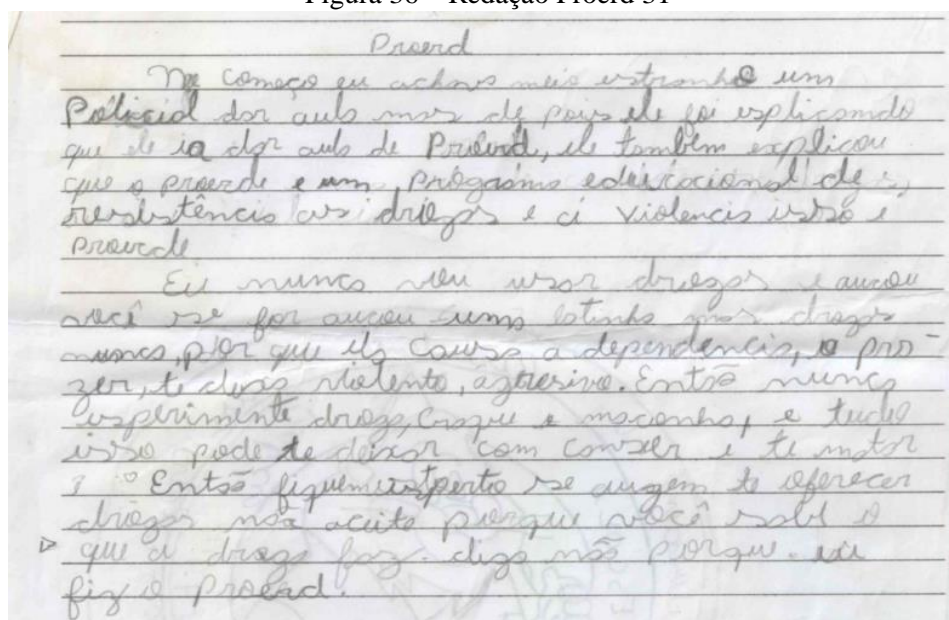 Figura 36 – Redação Proerd 31
Proerd
No começo eu achava meio estranho um
Policial dar aula mas de pois ele foi esplicando
que ele ia dar aula de Proerd, ele tambem explicou
que o proerde e um, programa educacional de
resistência as drogas e a violencia isso é
proerde
Eu nunca vou usar drogas e aucou
você se for aucou uma latinha mas drogas
nunca, por que ela causa a dependencia, o pra-
zer, te deixa violento, agresivo. Então nunca
esperimente droga, craque e maconha, e tudo
isso pode te deixar com conser e te matar
Então fiquem esperto se augem te oferecer
drogas não aceite porque você sabe o
que a droga faz. diga não porque eu
fiz o Proerd.